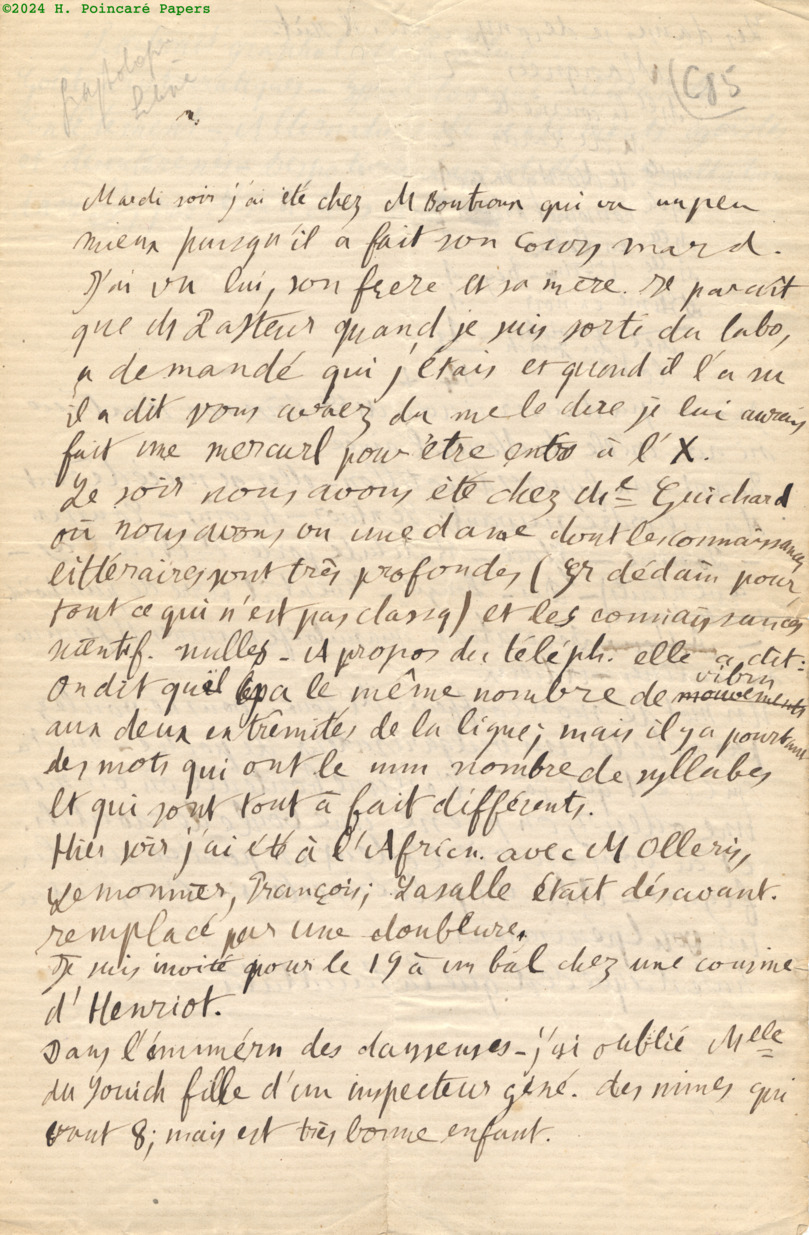 ©2024 H. Poincaré Papers
C85
Mardi soir j'ai été chez M Boutroux qui va un peu
mieux puisqu'il a fait son cours mard.
J'ai vu lui, son frere et sa mère. Il parait
que M Pasteur quand je suis sorti du labo,
a demandé qui j'étais et quand il l'a su
il a dit vous auriez du me le dire je lui aurais
fait une mercurl pour être entré à l'X.
Le soir nous avons été chez Me Guichard
où nous avons vu une dame dont les connaissances
littéraires sont très profondes (gr dédain pour
tout ce qui n'est pas classq) et les connaissances
scientif. nulles - A propos du téléph. elle a dit:
On dit qu'il y a le même nombre de mouvements vibrns
aux deux extrêmités de la ligne; mais il y a pourtant
des mots qui ont le mm nombre de syllabes
et qui sont tout à fait différents.
Hier soir j'ai été à l'African. avec M Olleris,
Lemonnier, François; Lasalle était désavant.
remplacé par une doublure.
Je suis invité pour le 19 à un bal chez une cousine
d'Henriot.
Dans l'énumérn des danseuses - j'ai oublié Melle
du Souich fille d'un inspecteur géné. des mines qui
vaut 8; mais est très bonne enfant.